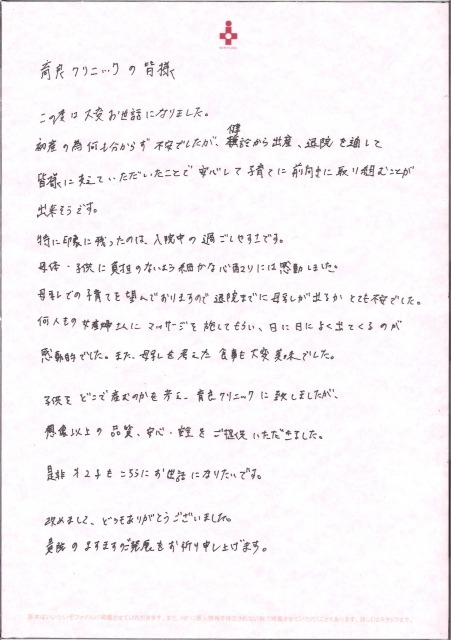 育良クリニックの皆様
この度は大変お世話になりました。
初産の為何も分からず不安でしたが、健診から出産、退院を通して
皆様に支えていただいたことで安心して子育てに前向きに取り組むことが
出来そうです。
特に印象に残ったのは、入院中の過ごしやすさです。
母体・子供に負担のないよう細かな心配りには感動しました。
母乳での子育てを望んでおりますので退院までに母乳が出るかとても不安でした。
何人もの助産婦さんにマッサージを施してもらい、日に日によく出てくるのが
感動的でした。また、母乳を考えた食事も大変美味でした。
子供をどこで産むのかを考え、育良クリニックに致しましたが、
想像以上の品質、安心・安全をご提供いただきました。
是非オ2子もこちらにお世話になりたいです。
改めまして、どうもありがとうございました。
貴院のますますのご発展をお祈り申し上げます。